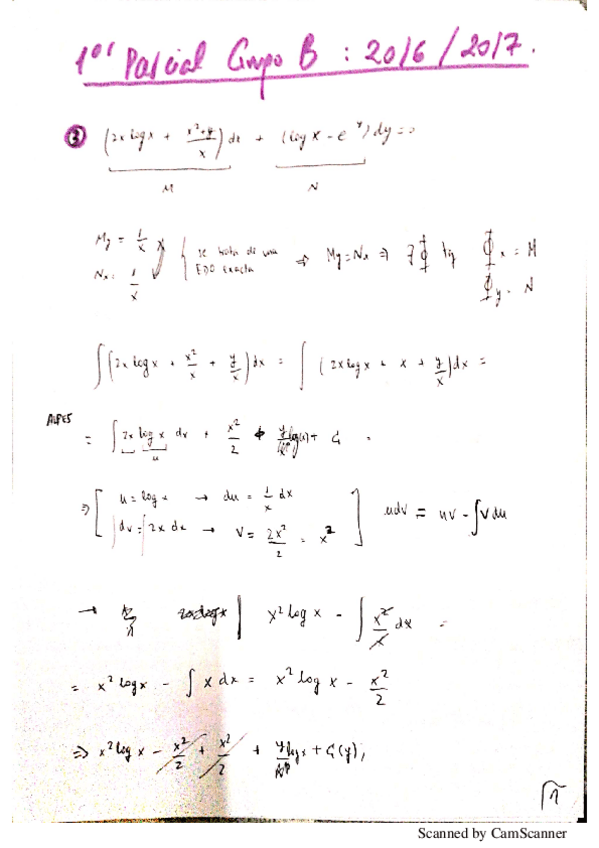 1er Parcial Grupo B : 2016/2017.
③ (2x log x + (x²+y)/x) dx + (log x - e^y) dy = 0
M N
My = 1/x
Nx = 1/x
se trata de una
EDO exacta
⇒ My = Nx ⇒ ∃ Φ tq Φx = M
Φy = N
∫(2x log x + x²/x + y/x) dx = ∫(2x log x + x + y/x) dx =
ALPES
= ∫ 2x log x dx + x²/2 + y log(x) + G =
u
⇒ [ u = log x → du = 1/x dx
∫dv = ∫2x dx → v = 2x²/2 = x² ] udv = uv - ∫v du
→ x² log x - ∫ x²/x dx =
= x² log x - ∫ x dx = x² log x - x²/2
⇒ x² log x - x²/2 + x²/2 + y log x + G(y);
1
Scanned by CamScanner